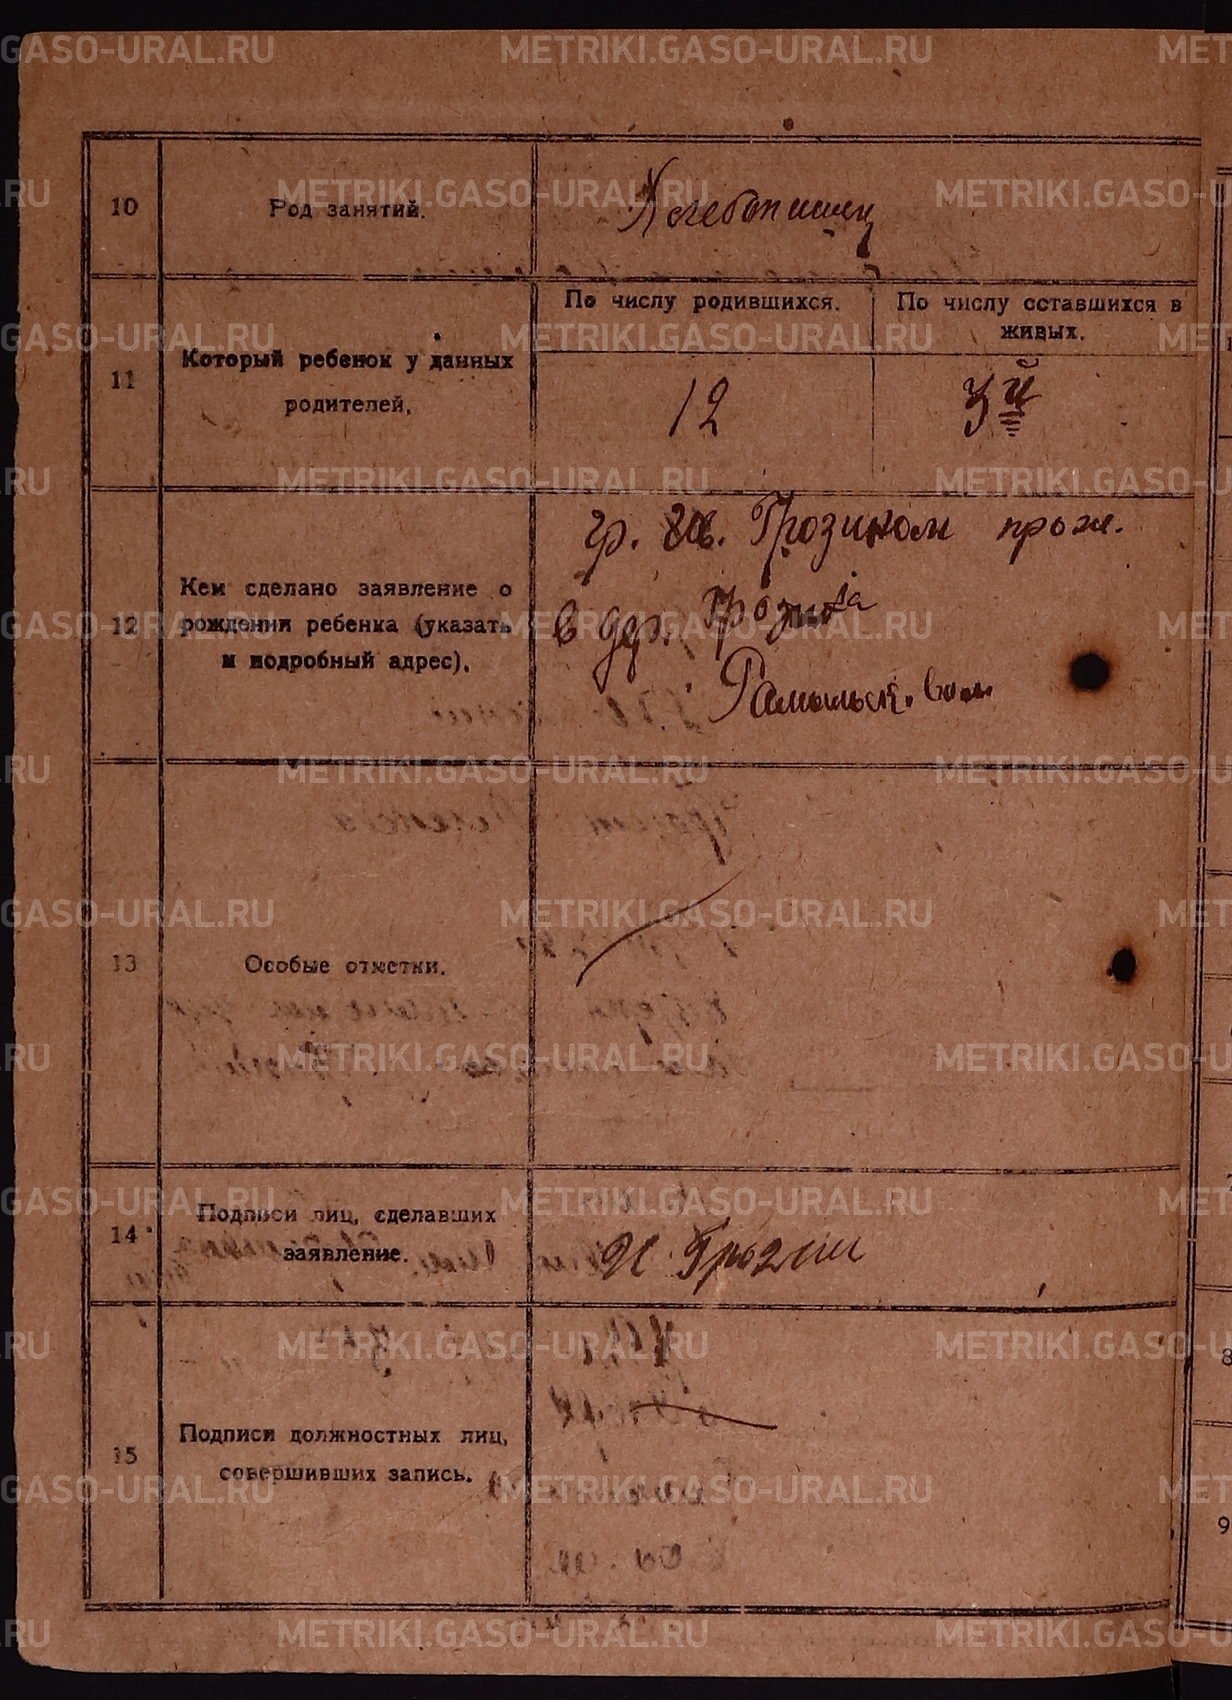 10
Род занятий.
Хлебопашец
11
Который ребенок у данных
родителей.
По числу родившихся.
По числу оставшихся в
живых.
12
3й
12
Кем сделано заявление о
рождении ребенка (указать
и подробный адрес).
гр. Ив. Грозином прож.
в дер. Грозина
Рамыльск. вол.
13
Особые отметки.
14
Подписи лиц, сделавших
заявление.
И Грозин
15
Подписи должностных лиц,
совершивших запись.
8
9
METRIKI.GASO-URAL.RU